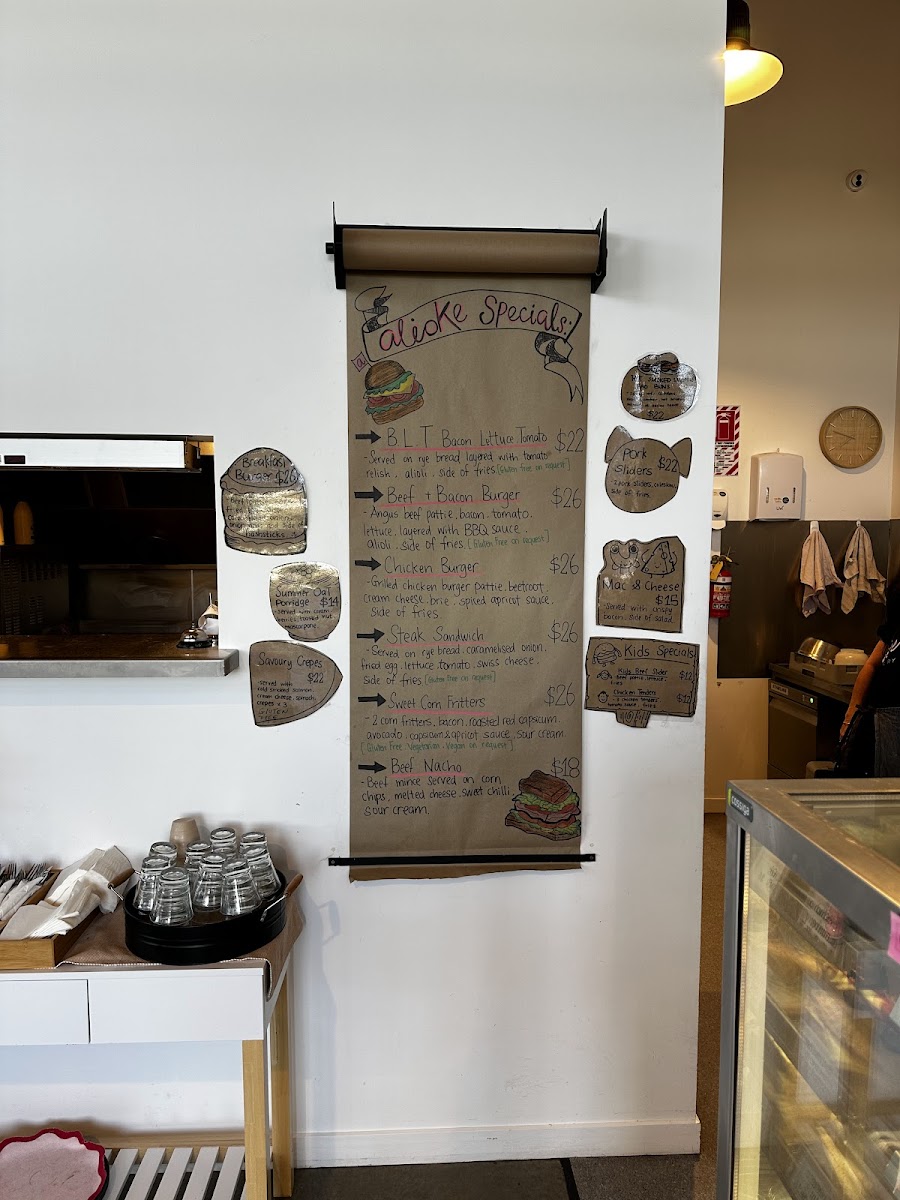 alioke Specials:
B L T Bacon Lettuce Tomato $22
- Served on rye bread layered with tomato
relish, alioli, side of fries. [Gluten free on request]
Beef + Bacon Burger $26
- Angus beef pattie, bacon, tomato,
lettuce, layered with BBQ sauce,
alioli, side of fries. [Gluten free on request]
Chicken Burger $26
- Grilled chicken burger pattie, beetroot
cream cheese, brie, spiced apricot sauce,
side of fries.
Steak Sandwich $26
- Served on rye bread, caramelised onion,
fried egg, lettuce, tomato, swiss cheese,
side of fries [Gluten free on request]
Sweet Corn Fritters $26
- 2 corn fritters, bacon, roasted red capsicum,
avocado, capsicum & apricot sauce, sour cream
[Gluten Free Vegetarian . Vegan on request]
Beef Nacho $18
- Beef mince served on corn
chips, melted cheese, sweet chilli,
sour cream.
Breakfast
Burger $26
hashsticks
Summer Oat
Porridge $14
served with
mascarpone.
Savoury Crepes
$22
- served with
cold smoked salmon,
cream cheese, spinach,
crepes x 3
Buns
$22
Pork
Sliders $22
- 2 pork sliders, coleslaw,
side of fries.
Mac & Cheese
$15
- Served with crispy
bacon, side of salad.
Kids Specials
Kids Beef Slider $12
fries
Chicken Tenders $12
cossiga